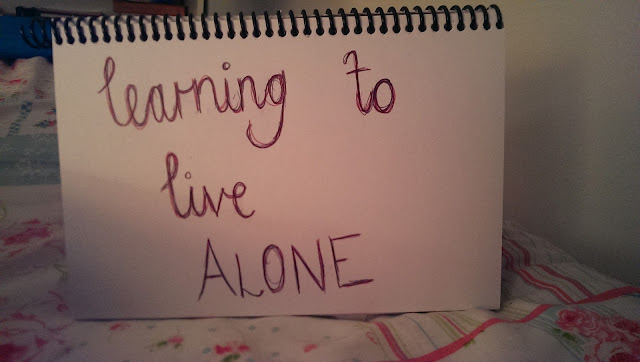 learning to
live
ALONE